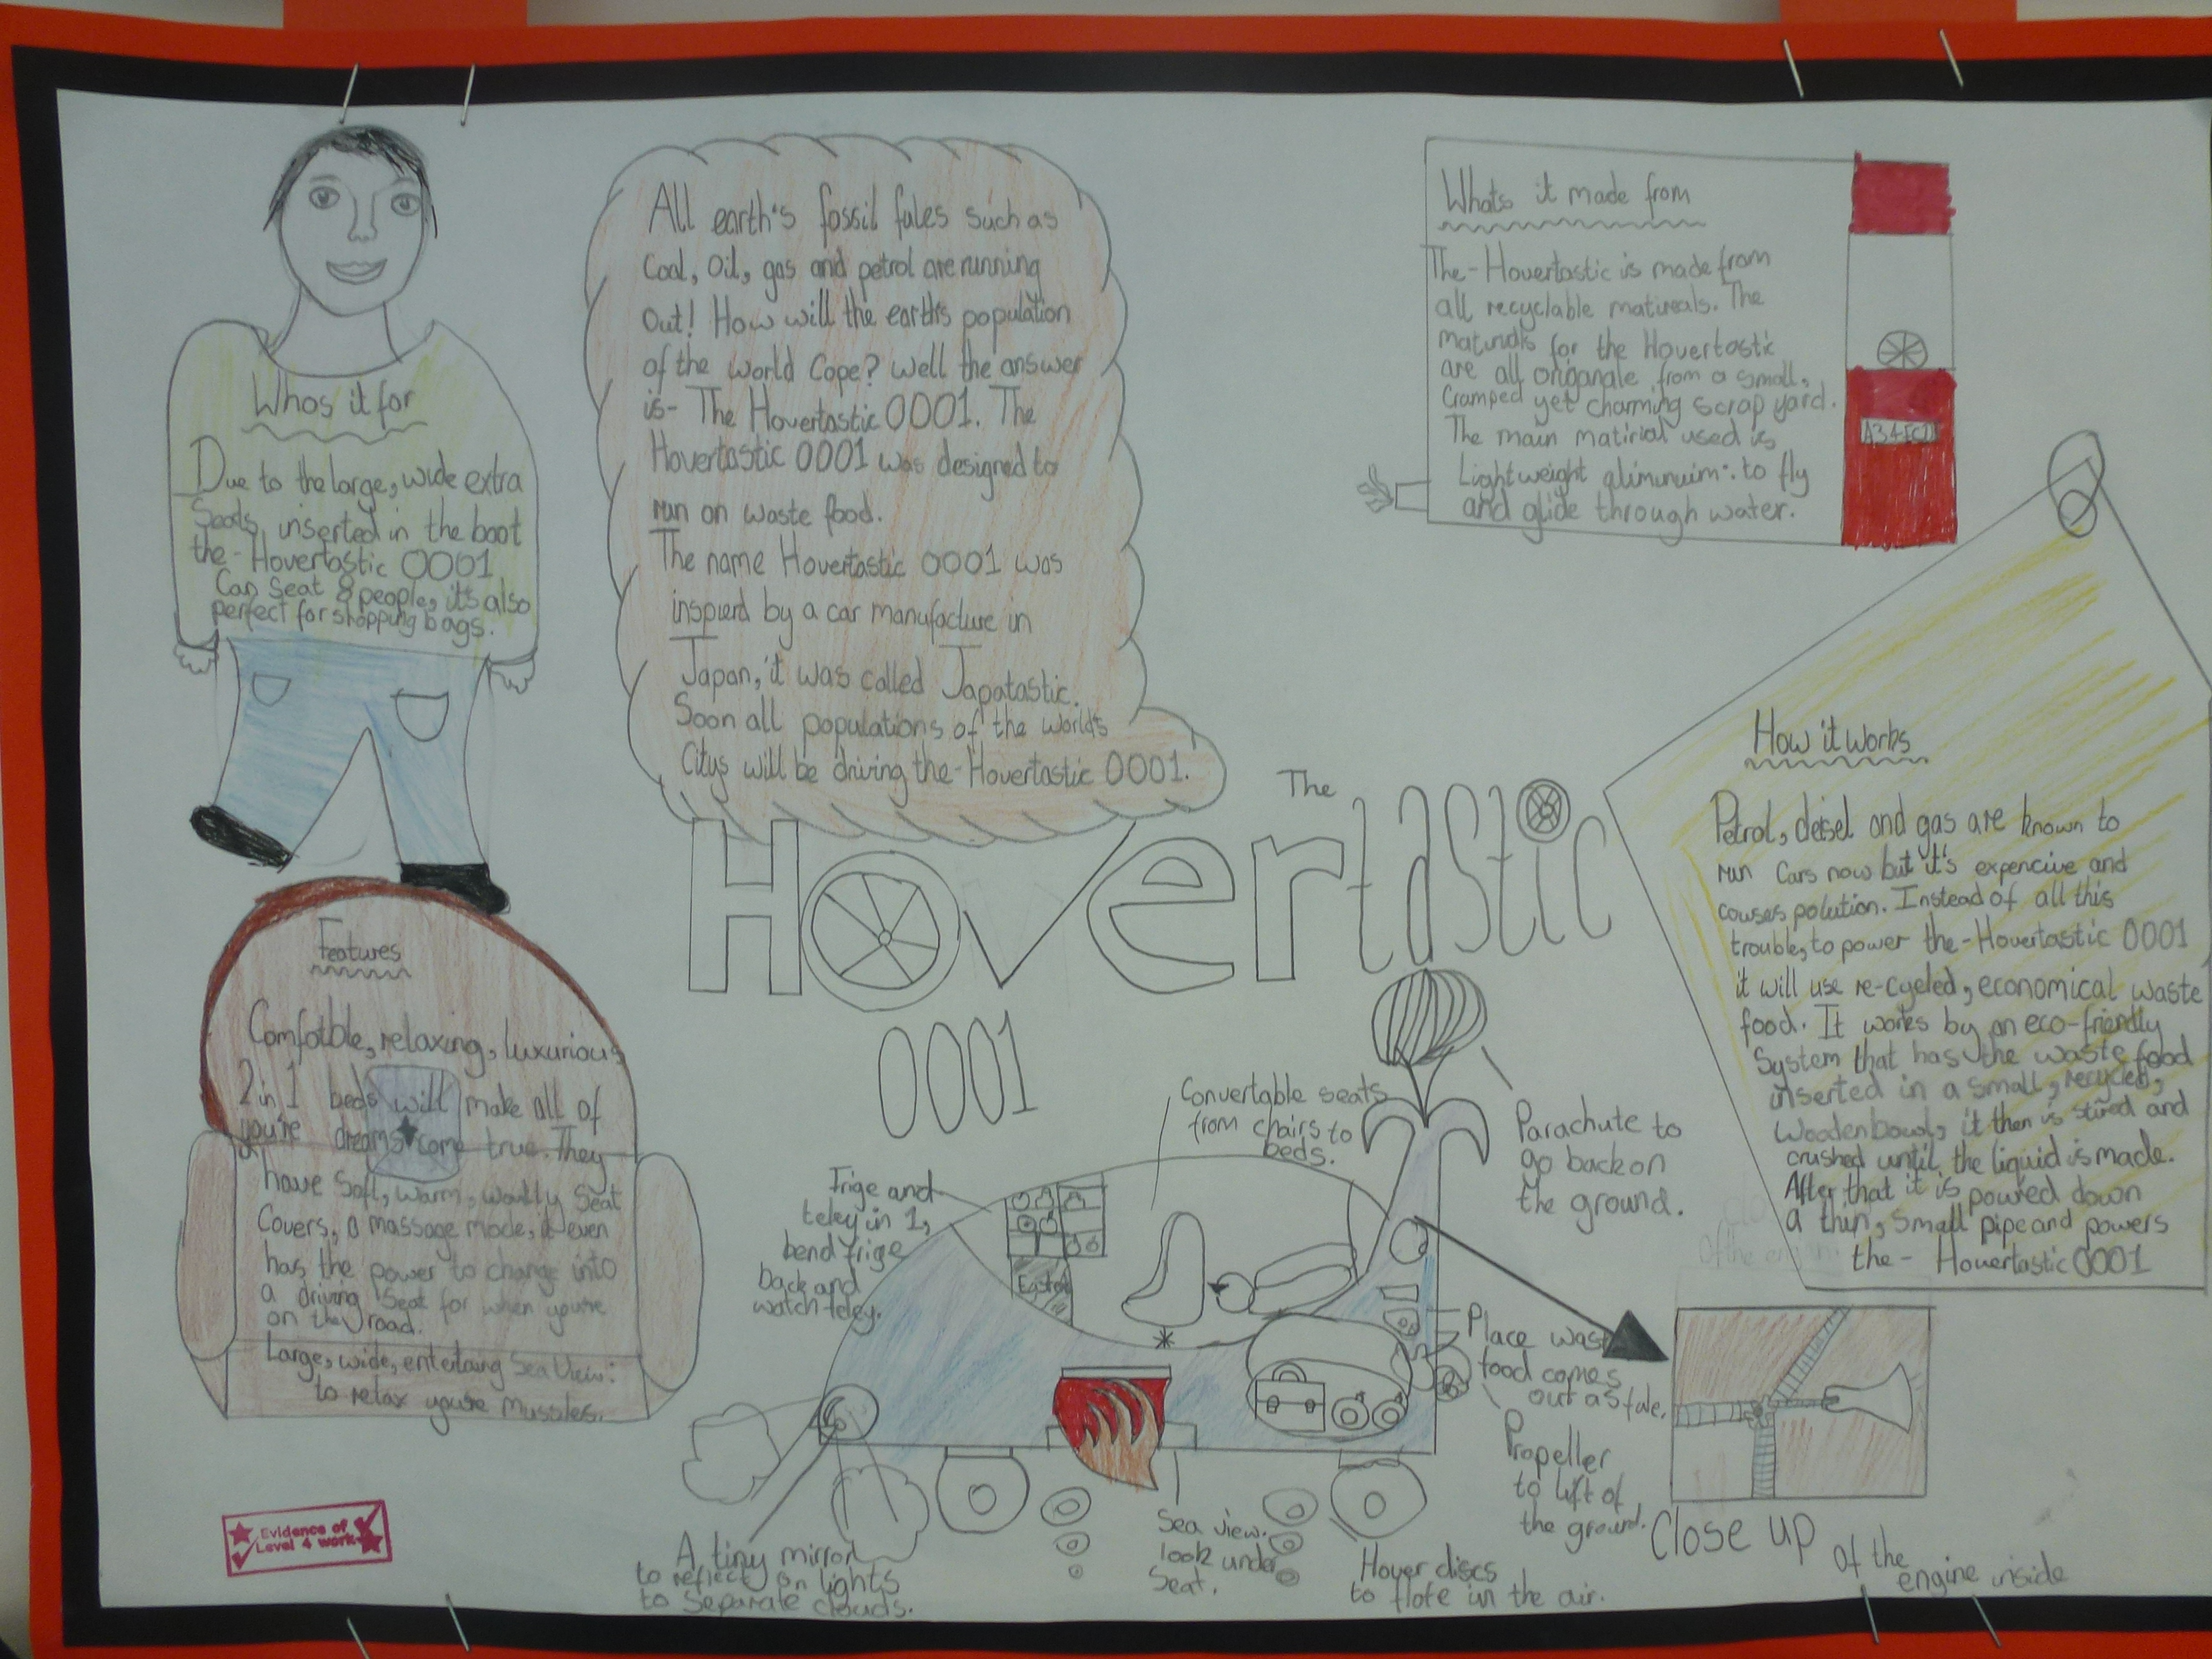 Whos it for
Due to the large, wide extra
Seats, inserted in the boot
the-Hovertastic 0001
Can Seat 8 people, it's also
perfect for shopping bags.
All earth's fossil fules such as
Coal, Oil, gas and petrol are running
Out! How will the earths population
of the world Cope? Well the answer
is- The Hovertastic 0001. The
Hovertastic 0001 was designed to
run on waste food.
The name Hovertastic 0001 was
inspierd by a car manufacture in
Japan, it was called Japatastic.
Soon all populations of the worlds
Citys will be driving the-Hovertastic 0001.
Whats it made from
The-Hovertastic is made from
all recyclable matireals. The
for the Hovertastic
are all origanale from a small,
Cramped yet charming scrap yard.
The main matirial used is
Lightweight aliminuim: to fly
and glide through water.
How it works
Petrol, deisel and gas are known to
run Cars now but it's expencive and
causes polution. Instead of all this
trouble, to power the-Hovertastic 0001
it will use re-cycled, economical waste
food. It works by an eco-friendly
System that has the waste food
inserted in a small, recycled,
Wooden bowl, it then is stired and
crushed until the liquid is made.
After that it is powred down
a thin, small pipe and powers
the- Hovertastic 0001
The
Hovertastic
0001
Features
Comfotble, relaxing, luxurious
2 in 1 beds will make all of
you're dreams come true. They
have Soft, warm, woolly Seat
Covers, a massage mode, it even
has the power to change into
a driving Seat for when you're
on the road.
Large, wide, entertaing Sea View:
to relax you're mussles.
Convertable seats
from chairs to
beds.
Parachute to
go back on
the ground.
Frige and
teley in 1,
bend frige
back and
watch teley.
Place
food comes
out as fule.
Propeller
to lift of
the ground.
Close up
of the
engine inside
A tiny mirror
to reflect on lights
to Separate clouds.
Sea view.
look under
Seat.
Hover discs
to flote in the air.
Evidence of
Level 4 work